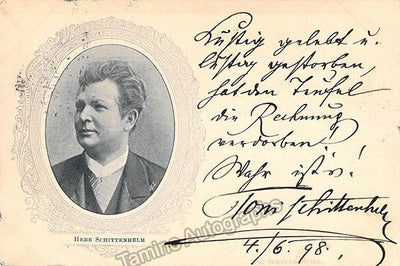 Lustig gelebt u.
lustig gestorben,
hat den Teufel
die Rechnung
verdorben!
Wahr ist's!
Toni Schittenhelm
4./6. 98.
HERR SCHITTENHELM
Tamino Autographs